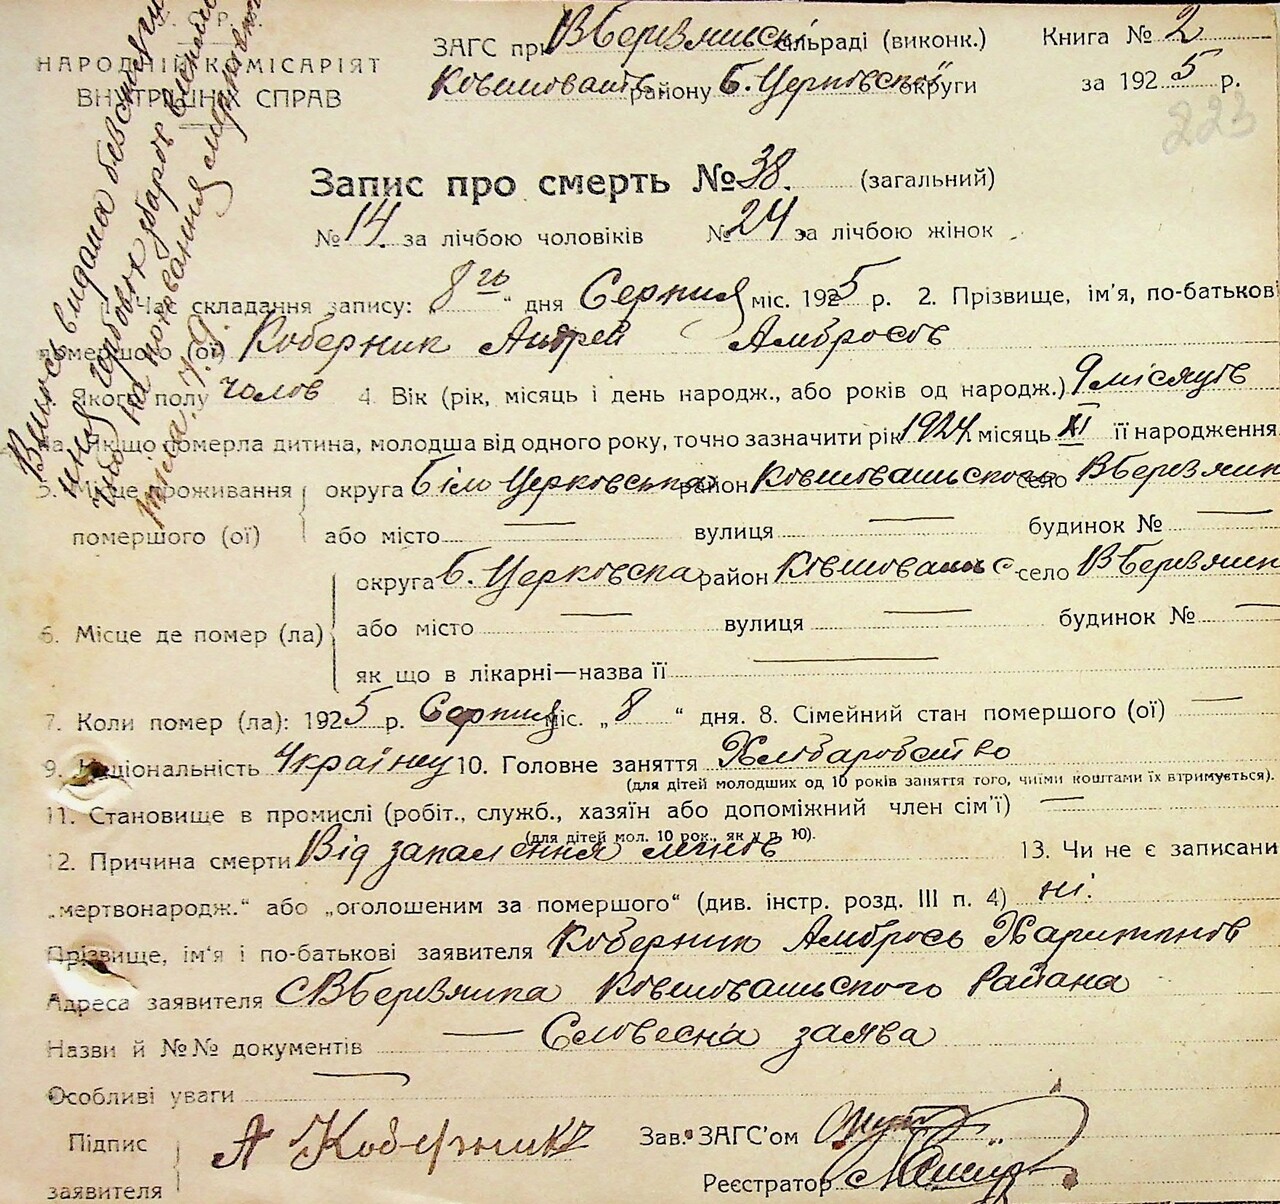 НАРОДНІЙ КОМІСАРІЯТ
ВНУТРІШНІХ СПРАВ
ЗАГС при ВБерезянськ. сільраді (виконк.) Книга № 2
Ковшоватс. району Б. Церковської округи за 1925 р.
223
Запис про смерть № 38. (загальний)
№ 14. за лічбою чоловіків № 24 за лічбою жінок
1. Час складання запису: „8го“ дня Серпня міс. 1925 р. 2. Прізвище, ім'я, по-батькові
помершого (ої) Коберник Андрей Амбросов
3. Якого полу чолов 4. Вік (рік, місяць і день народж., або років од народж.) 9 місяців
4а. Якщо померла дитина, молодша від одного року, точно зазначити рік 1924 місяць XI її народження
5. Місце проживання помершого (ої)
округа Біло Церковська район Ковшовацького село ВБерезянка
або місто — вулиця — будинок № —
6. Місце де помер (ла)
округа Б. Церковска район Ковшоватс село ВБерезянк
або місто — вулиця — будинок № —
як що в лікарні—назва її —
7. Коли помер (ла): 1925 р. Серпня міс. „8“ дня. 8. Сімейний стан помершого (ої) —
9. Національність Україну 10. Головне заняття Хліборобство
(для дітей молодших од 10 років заняття того, чиїми коштами їх втримується).
11. Становище в промислі (робіт., служб., хазяїн або допоміжний член сім'ї) —
(для дітей мол. 10 рок., як у п. 10).
12. Причина смерти Від запалення легнов 13. Чи не є записаний
„мертвонародж.“ або „оголошеним за помершого“ (див. інстр. розд. III п. 4) ні.
Прізвище, ім'я і по-батькові заявителя Коберник Амбрось Харитонов
Адреса заявителя с ВБерезянка Ковшовацького Района
Назви й №№ документів — Словесна заява
Особливі уваги —
Підпис заявителя А Коберникъ
Зав. ЗАГС'ом
Реєстратор